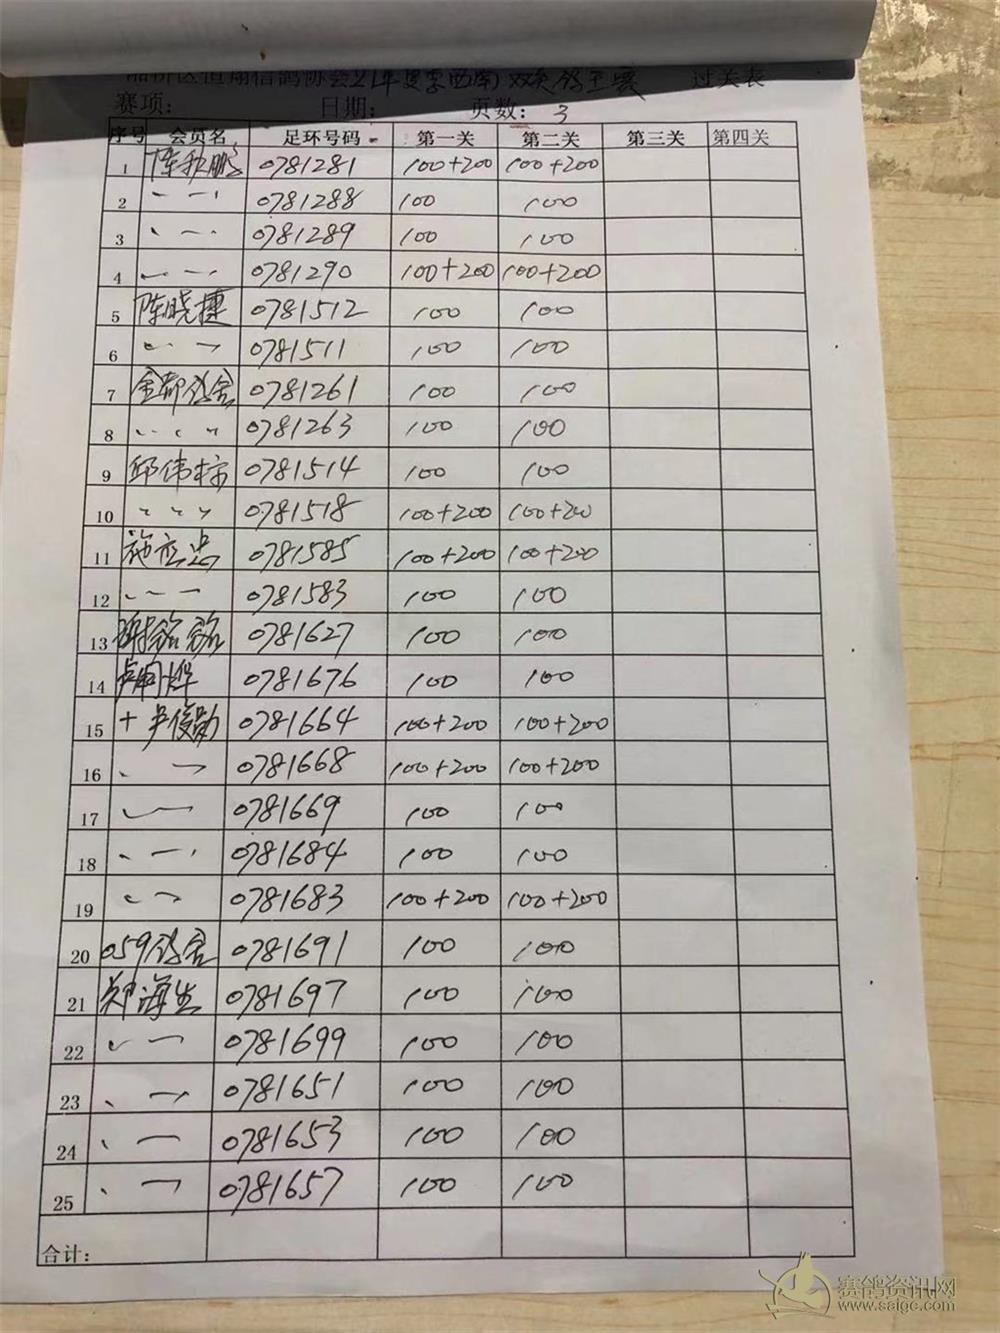 湘桥区恒翔信鸽协会21年夏季西南双关鸽王赛 过关表
赛项： 日期： 页数：3
序号 会员名 足环号码 第一关 第二关 第三关 第四关
1 陈秋鹏 0781281 100+200 100+200
2 0781288 100 100
3 0781289 100 100
4 0781290 100+200 100+200
5 陈晓捷 0781512 100 100
6 0781511 100 100
7 金都鸽舍 0781261 100 100
8 0781263 100 100
9 邱伟 0781514 100 100
10 0781518 100+200 100+200
11 施应忠 0781585 100+200 100+200
12 0781583 100 100
13 0781627 100 100
14 0781676 100 100
15 + 尹俊勋 0781664 100+200 100+200
16 0781668 100+200 100+200
17 0781669 100 100
18 0781684 100 100
19 0781683 100+200 100+200
20 059鸽舍 0781691 100 100
21 郑海生 0781697 100 100
22 0781699 100 100
23 0781651 100 100
24 0781653 100 100
25 0781657 100 100
合计：
赛鸽资讯网
www.saigc.com